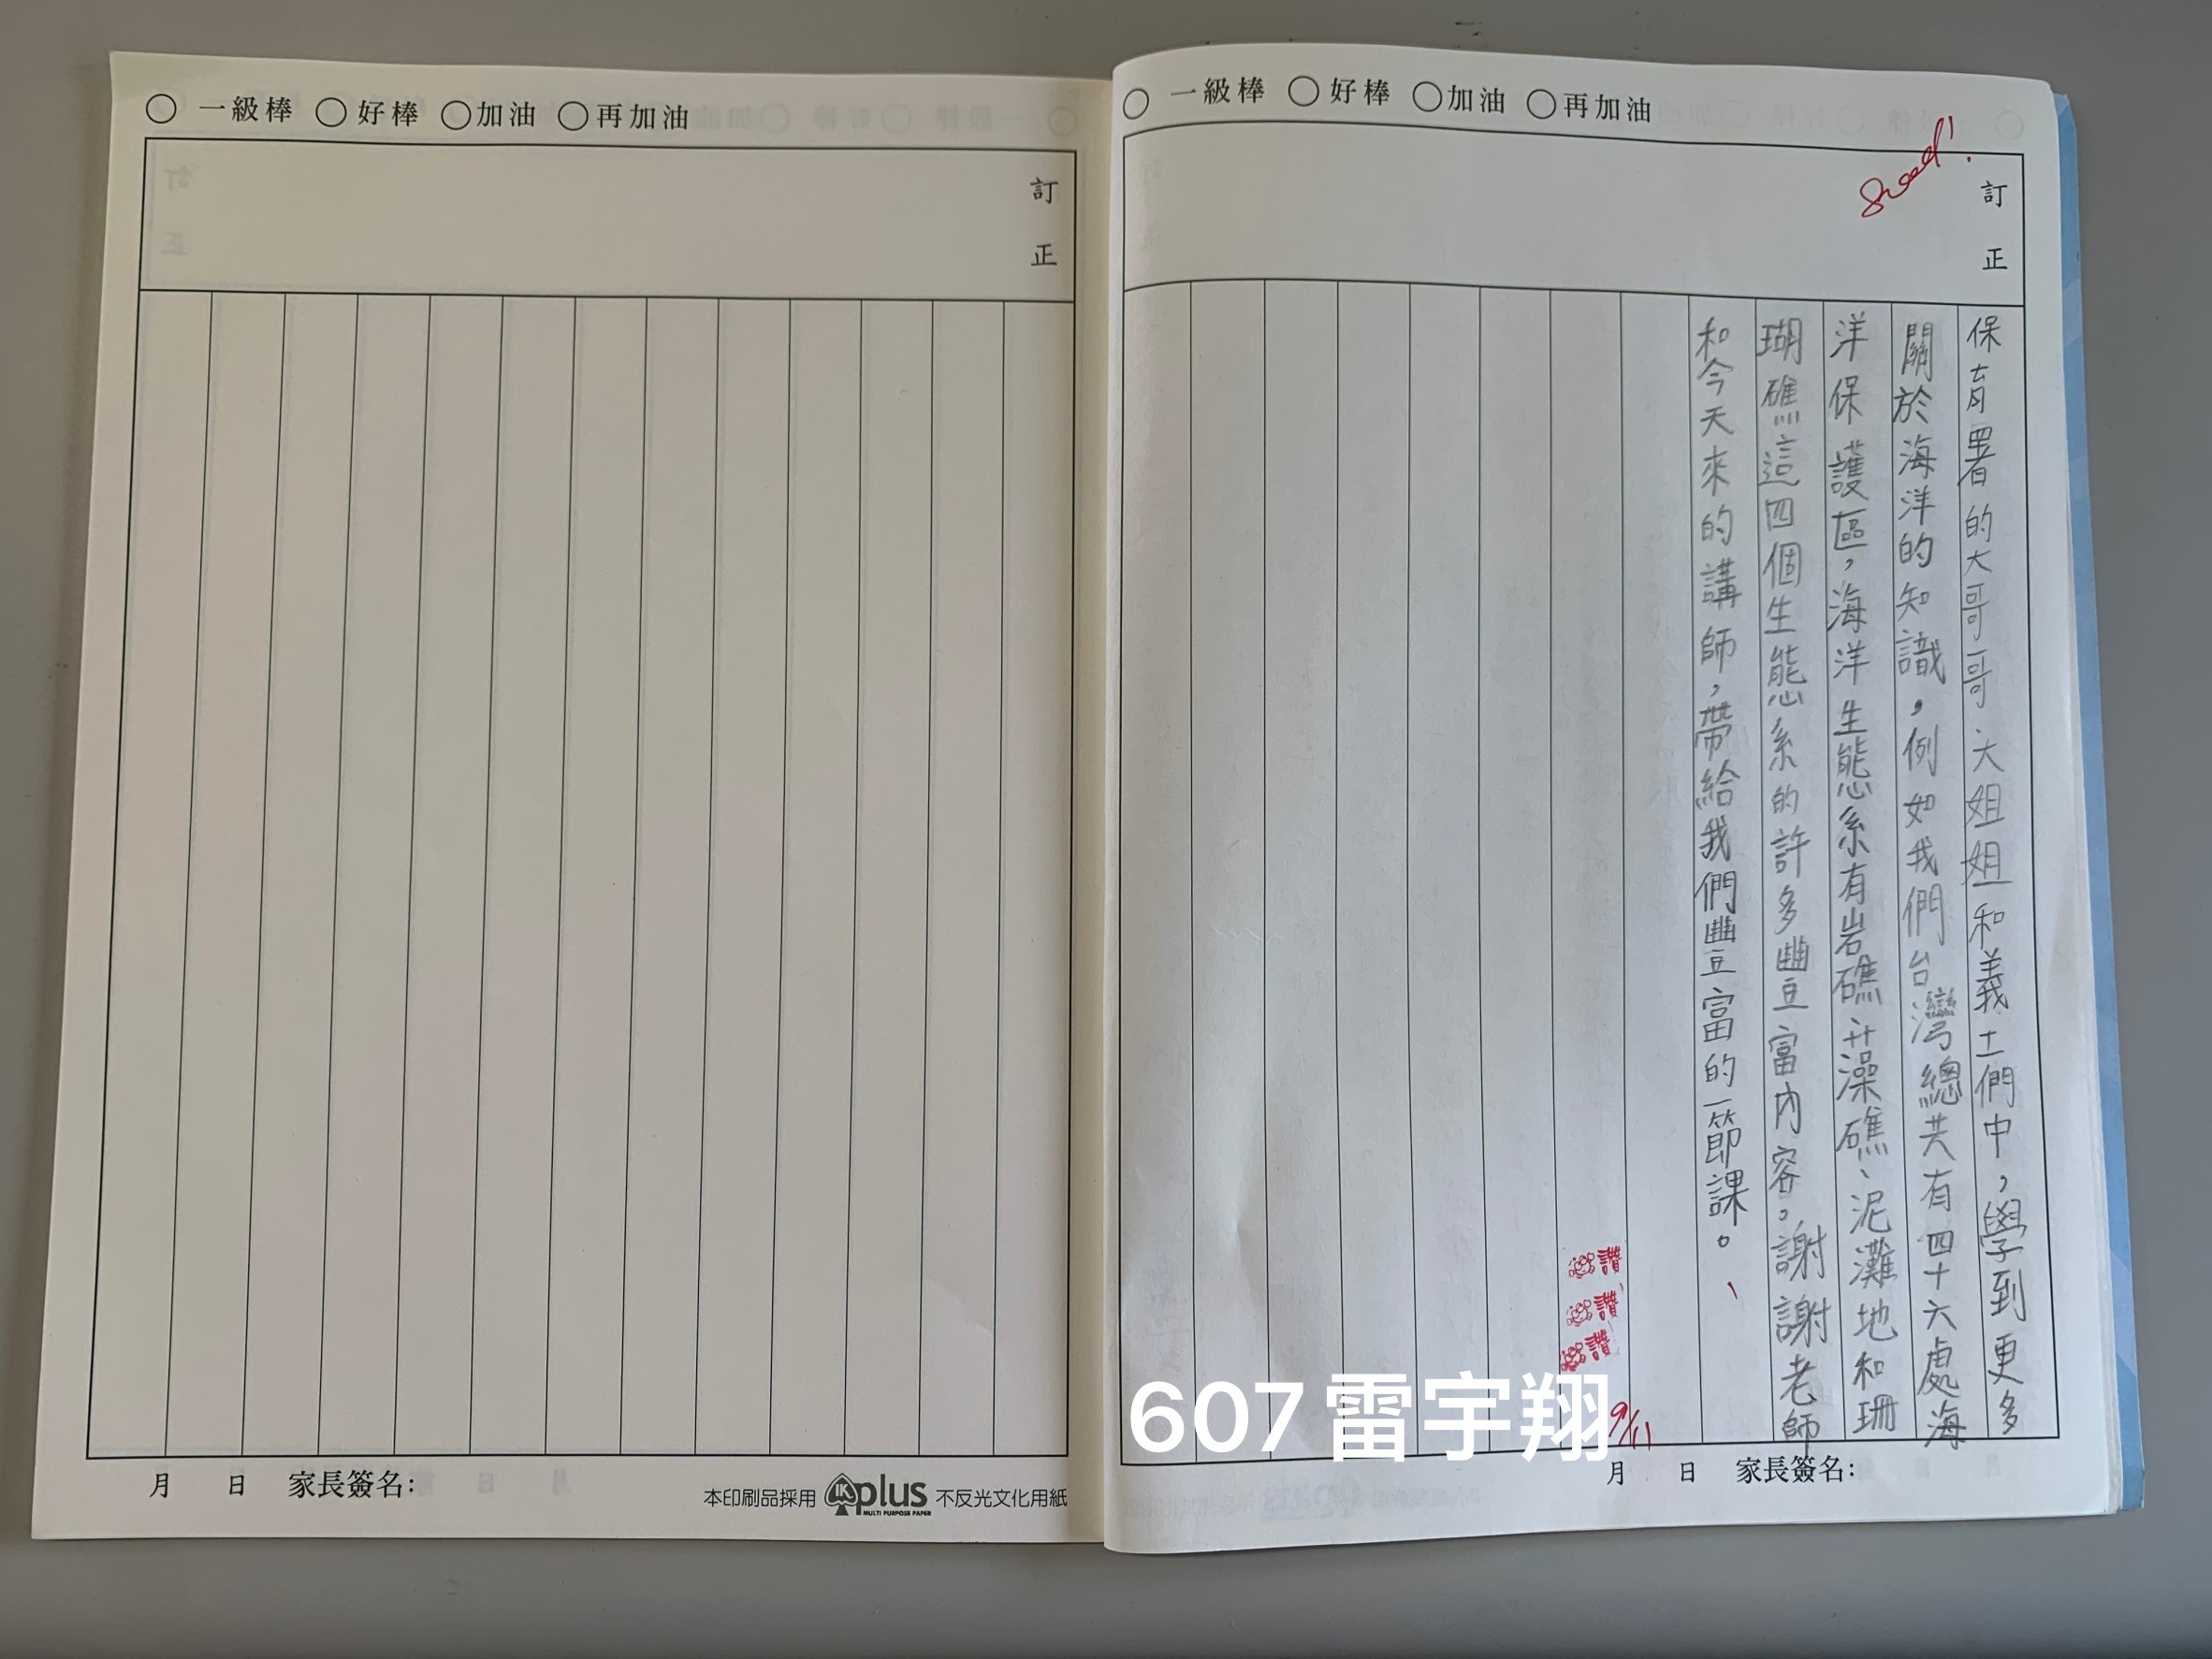 ○一級棒 ○好棒 ○加油 ○再加油
訂正
Good!
保育署的大哥哥、大姐姐和義士們中，學到更多
關於海洋的知識。例如我們台灣總共有四十六處海
洋保護區，海洋生態系有岩礁、藻礁、泥灘地和珊
瑚礁這四個生態系的許多豐富內容。謝謝老師
和今天來的講師，帶給我們豐富的一節課。
讚
讚
讚
9/11
607雷宇翔
月 日 家長簽名：
○一級棒 ○好棒 ○加油 ○再加油
訂正
月 日 家長簽名：
本印刷品採用 IK plus MULTI PURPOSE PAPER 不反光文化用紙